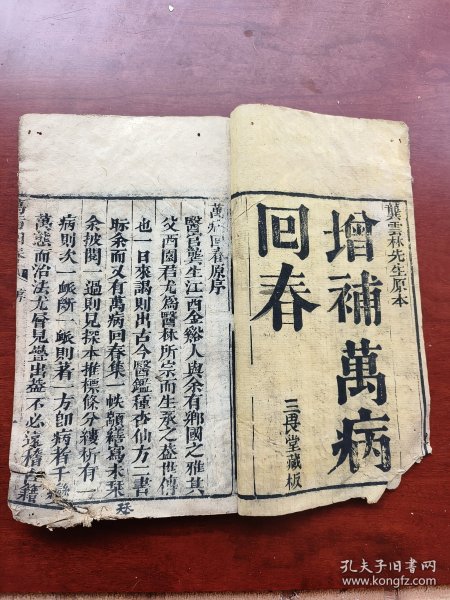 龔雲林先生原本
增補萬病
回春
三畏堂藏板
萬病回春原序
醫官龔生江西金谿人與余有鄉國之雅其
父西園君尤為醫林所宗而生承之益世傳
也一日來謁則出古今醫鑑種杏仙方二書
眎余而又有萬病回春集一帙顓繕寫未栞
余披閱一過則見探本推標條分縷析有一
病則次一𠂢所一𠂢則著一方卽病者千
萬態而治法尤層見疊出益不必遠稽古籍
孔夫子旧书网
www.kongfz.com